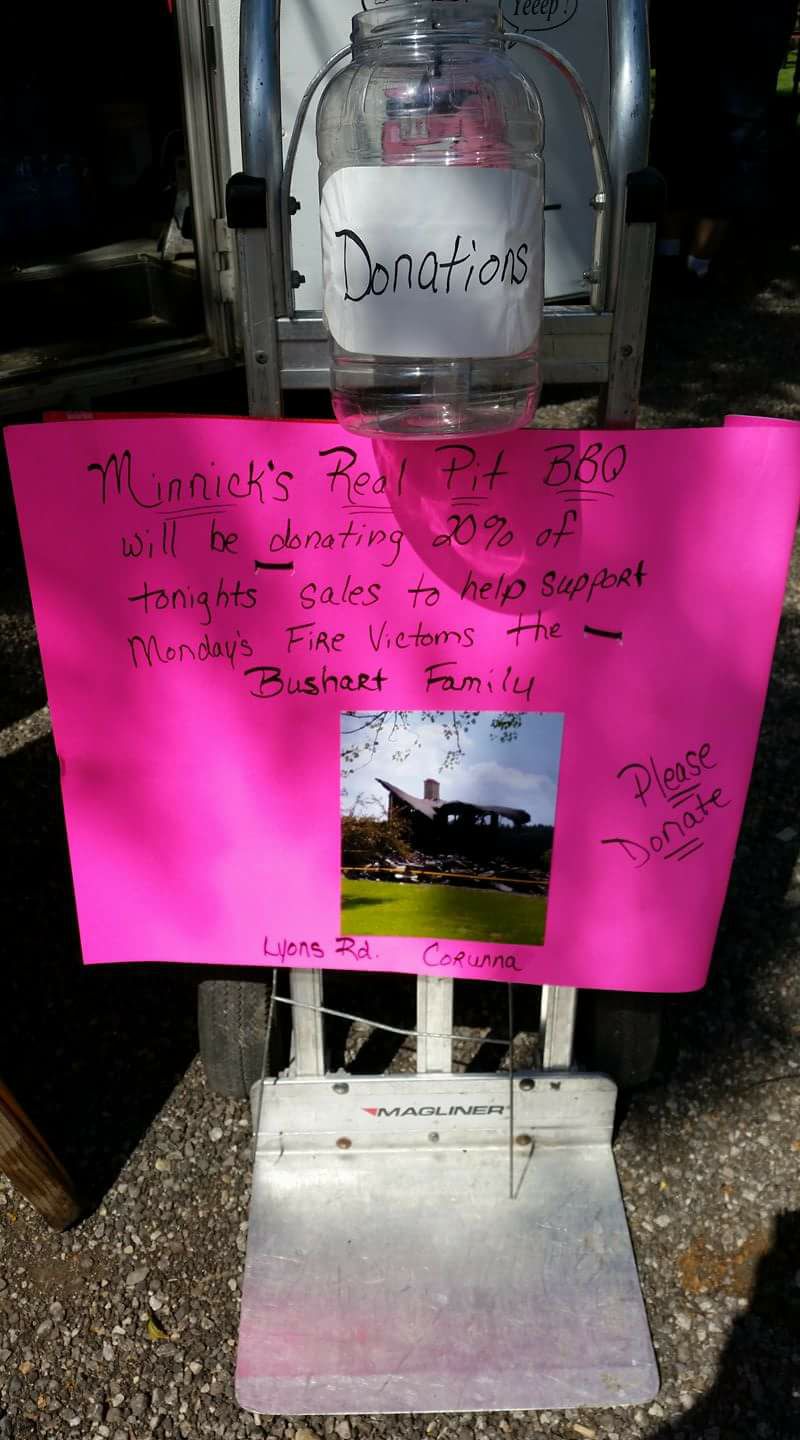 Yeeep!
Donations
Minnick's Real Pit BBQ
will be donating 20% of
tonights sales to help support
Monday's Fire Victoms the
Bushart Family
Please
Donate
Lyons Rd. Corunna
MAGLINER